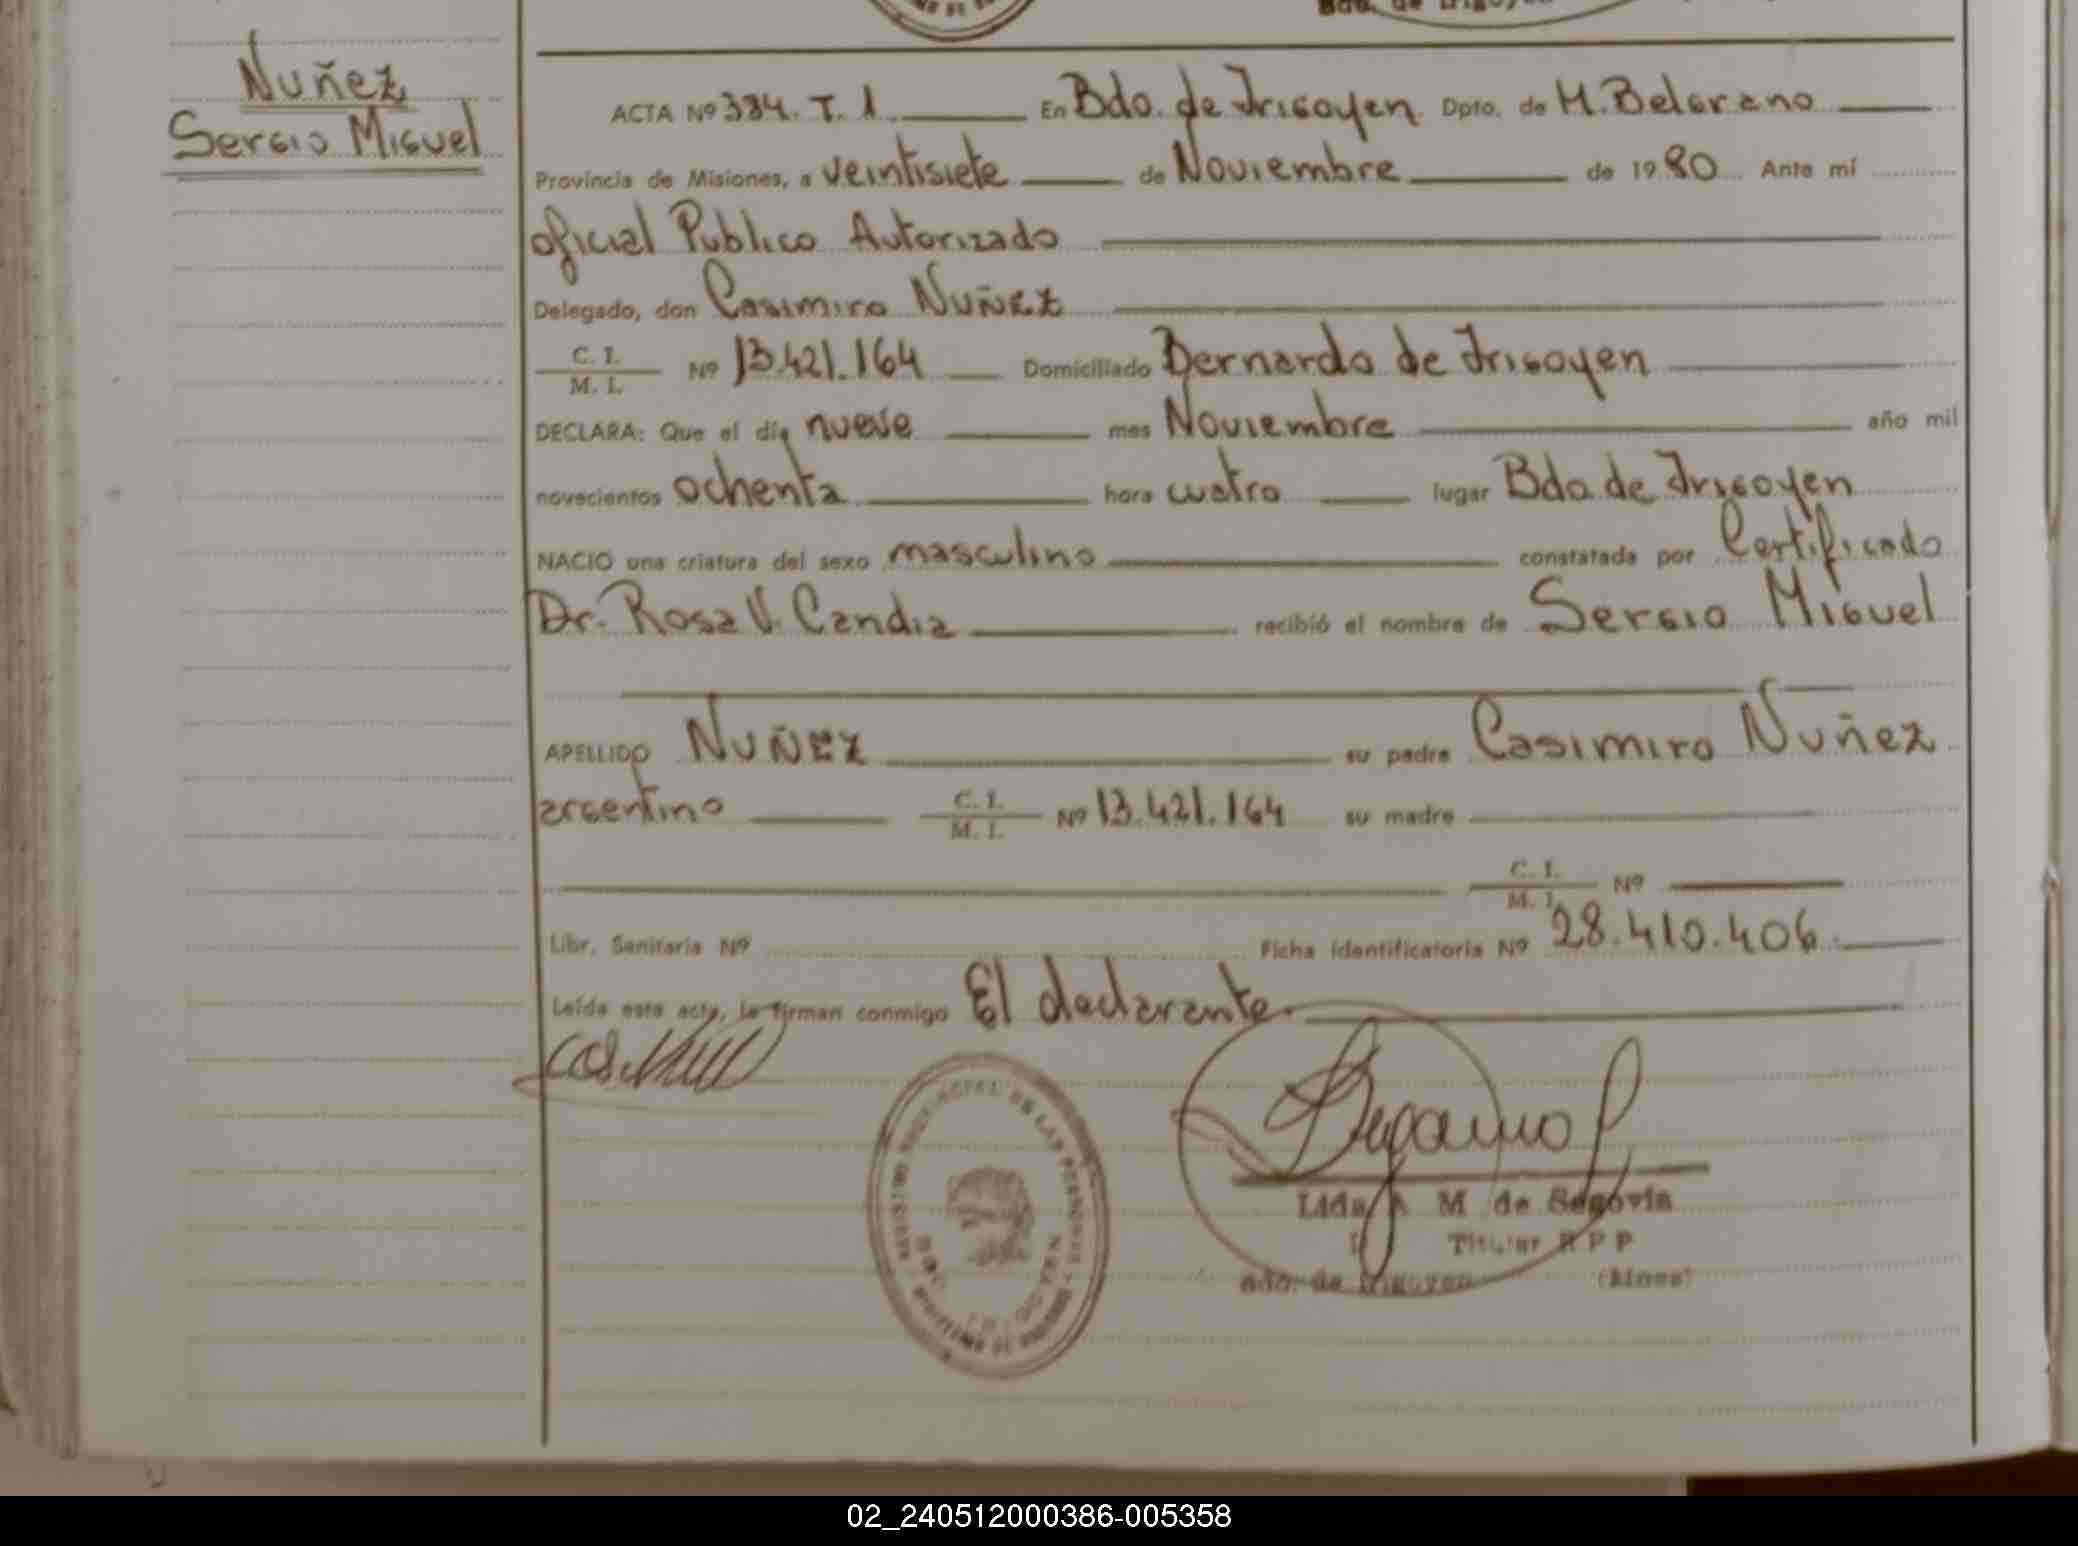 Bdo. de Irigoyen
Nuñez
Sergio Miguel
ACTA Nº 384. T. 1 En Bdo. de Irigoyen Dpto. de M. Belgrano
Provincia de Misiones, a veintisiete de Noviembre de 1980 Ante mí
oficial Publico Autorizado
Delegado, don Casimiro Nuñez
C. I.
M. I. Nº 13.421.164 Domiciliado Bernardo de Irigoyen
DECLARA: Que el día nueve mes Noviembre año mil
novecientos ochenta hora cuatro lugar Bdo. de Irigoyen
NACIO una criatura del sexo masculino constatada por Certificado
Dr. Rosa V. Candia recibió el nombre de Sergio Miguel
APELLIDO Nuñez su padre Casimiro Nuñez
argentino C. I.
M. I. Nº 13.421.164 su madre
C. I.
M. I. Nº
Libr. Sanitaria Nº Ficha identificatoria Nº 28.410.406
Leída esta acta, la firman conmigo El declarante
Lida M de Segovia
Titular R P P
Bdo. de Irigoyen (Mnes)
02_240512000386-005358